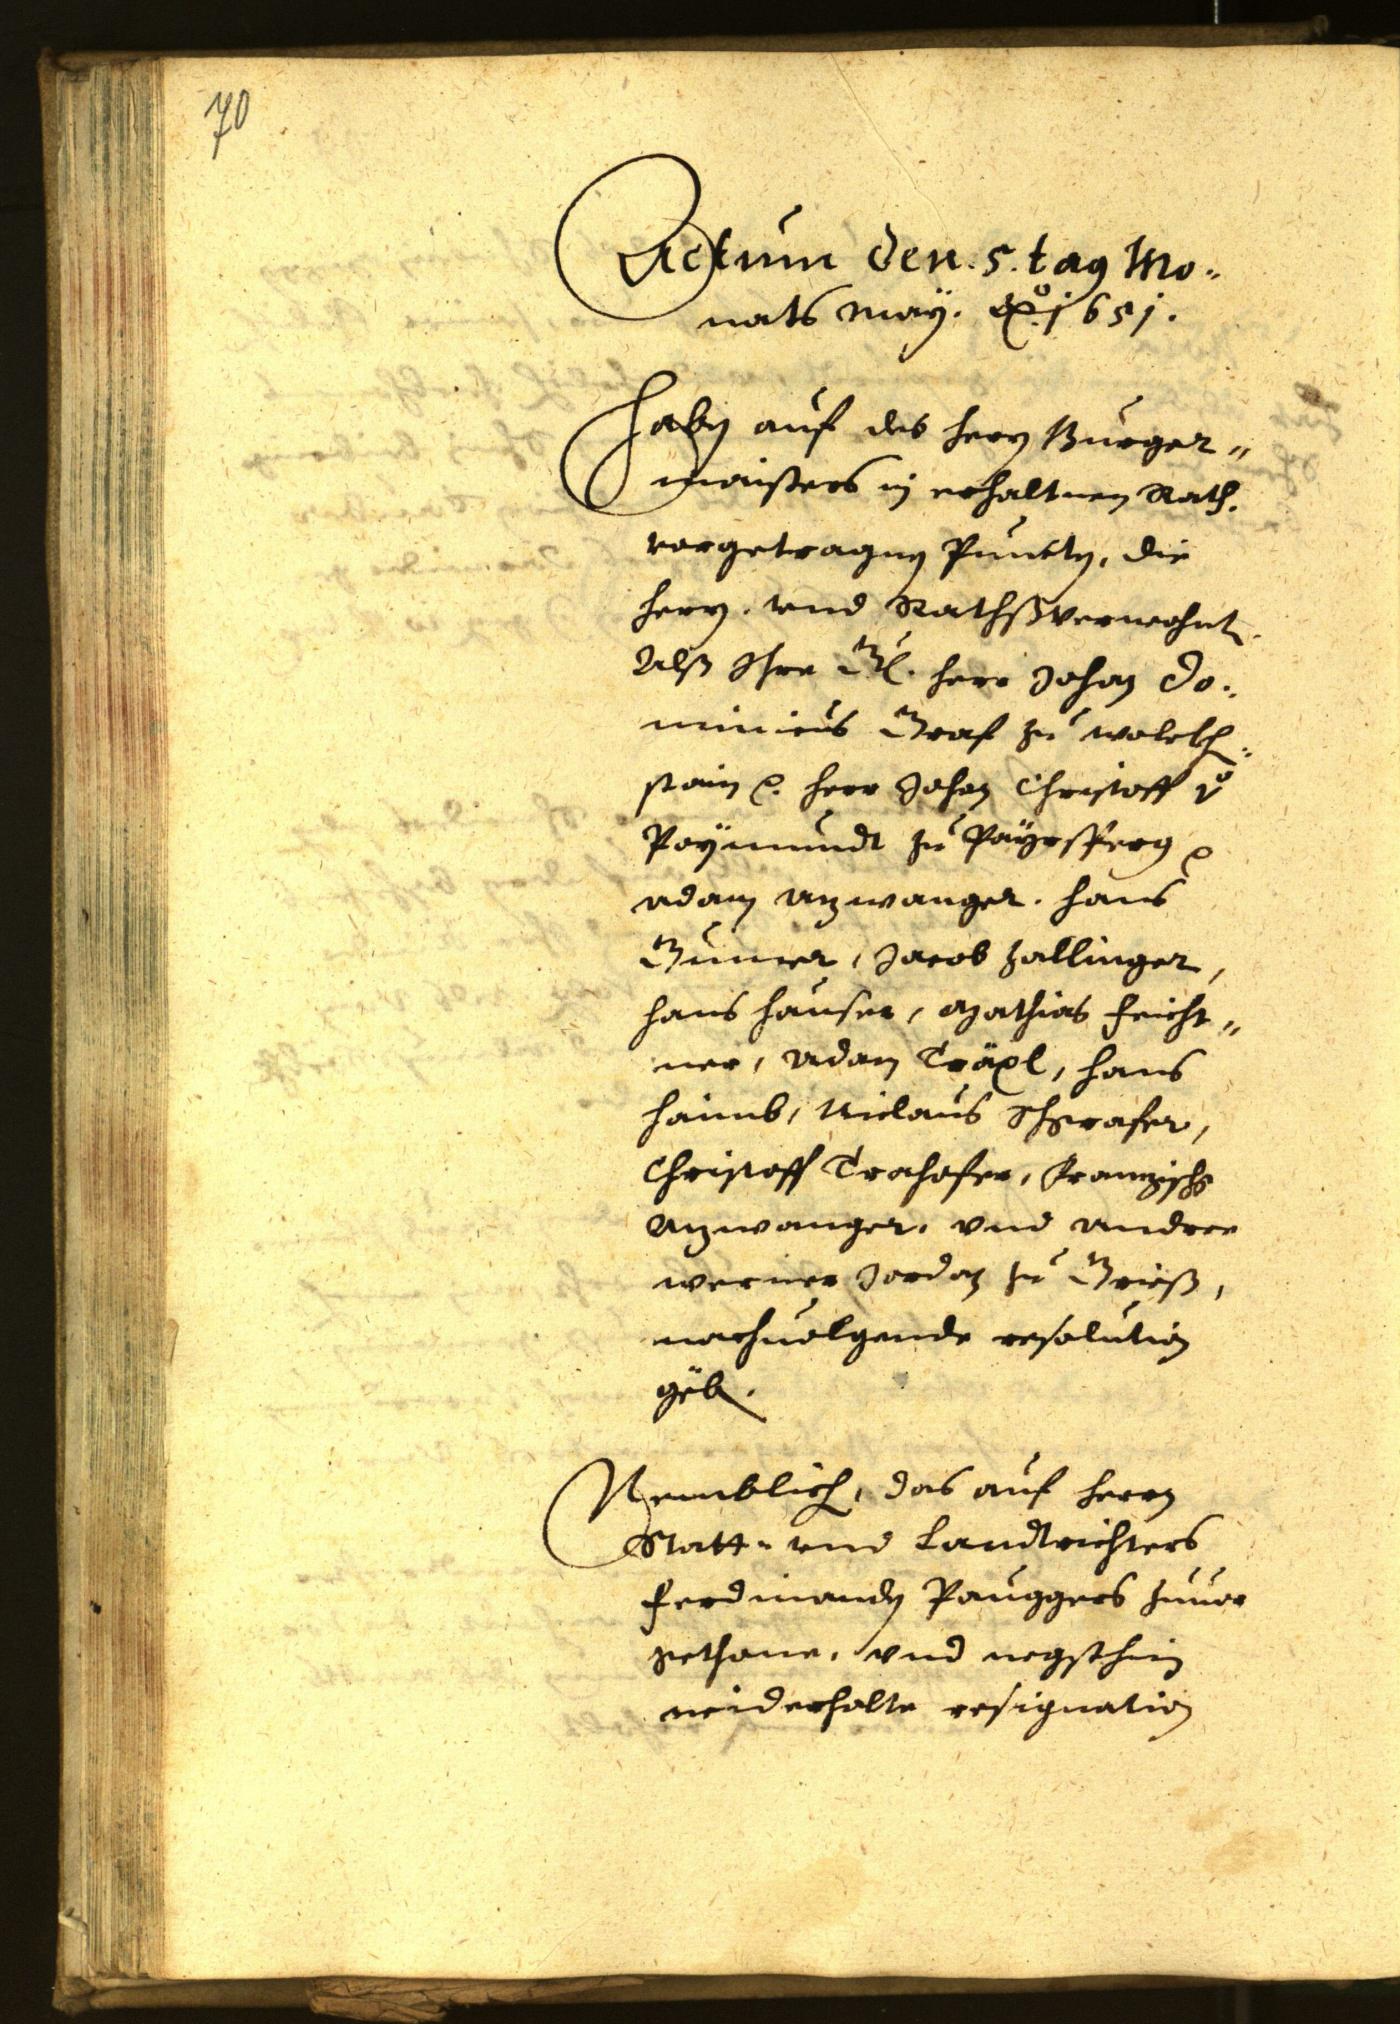 70
Actum den. 5. tag Mo„
nats May. Ao. 1651.
Haben auf des herrn Burger„
maisters in erhaltnen Rath.
vorgetragnen Puncten, die
herrn. vnd Rathßverwohnte
Alß Ihre Gl. herr Johan Do„
minicus Graf zu wolckhen„
stain p. herr Johan Christoff vo
Poymundt zu Payrsperg p
Adam Anzwanger. Hans
Gumer, Jacob Zallinger,
Hans Hauser, Mathias Feicht„
ner, Adam Träxl, Hans
Haimb, Niclaus Schrafer,
Christoff Trohofer, Francisch
Anzwanger. vnd Andree
werner Jordan zu Grieß,
nachuolgende resolution
geben.
Nemblich, das auf herrn
Statt- vnd Landtrichters
Ferdinanden Pauggers zuuor
gethane. vnd negsthin
widerholte resignation